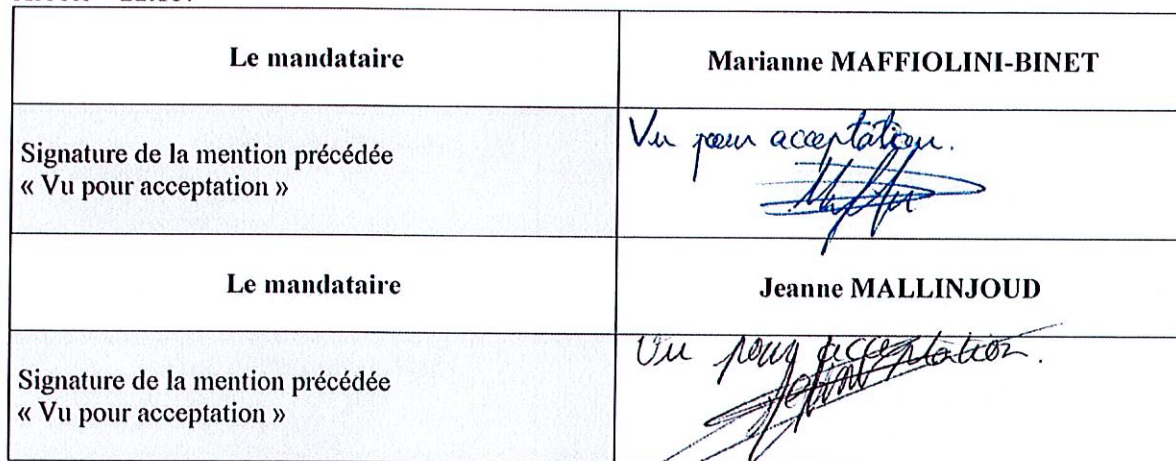 Le mandataire
Marianne MAFFIOLINI-BINET
Signature de la mention précédée
« Vu pour acceptation »
Vu pour acceptation.
Le mandataire
Jeanne MALLINJOUD
Signature de la mention précédée
« Vu pour acceptation »
Vu pour acceptation.